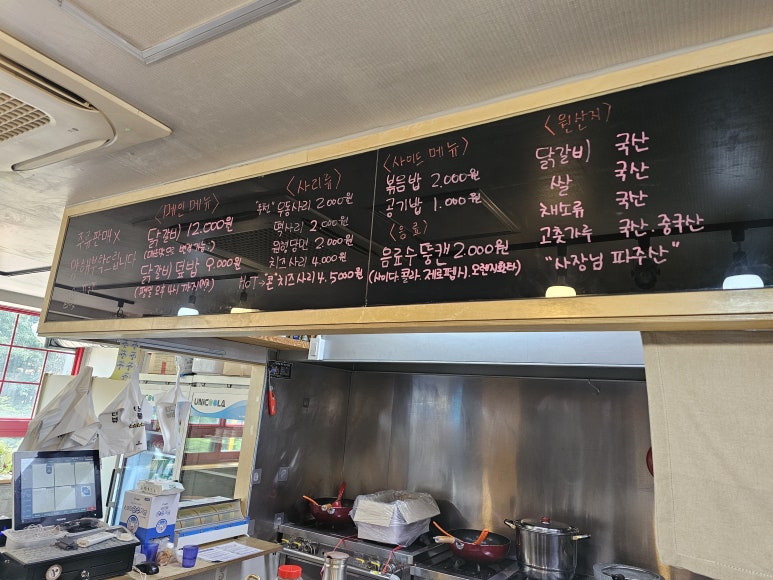 주류판매X
<메인 메뉴>
닭갈비 12.000원
닭갈비 덮밥 9.000원
<사리류>
"추천" 우동사리 2.000원
떡사리 2.000원
치즈사리 4.000원
HOT→"콘"치즈사리 4.5000원
<사이드 메뉴>
볶음밥 2.000원
공기밥 1.000원
<음료>
음료수 뚱캔 2.000원
(사이다. 콜라. 제로펩시. 오렌지환타)
<원산지>
닭갈비 국산
쌀 국산
채소류 국산
고춧가루 국산.중국산
"사장님 파주산"
UNICOOLA